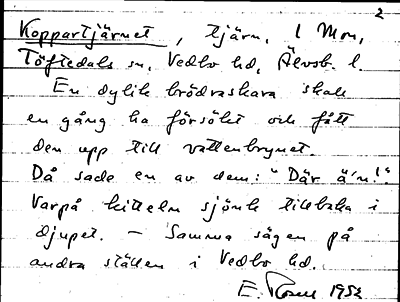 2
Koppartjärnet, tjärn, l Mon,
Töftedals sn, Vedbo hd, Älvsb. l.
En dylik brödraskara skall
en gång ha försökt och fått
den upp till vattenbrynet.
Då sade en av dem: "Där ä'n!".
Varpå kitteln sjönk tillbaka i
djupet. — Samma sägen på
andra ställen i Vedbo hd.
E. 1952